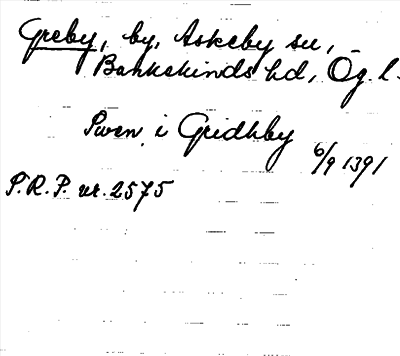 Greby, by, Askeby sn,
Bankekinds hd, Ög. l.
Swen i Gridhby
6/9 1391
P.R.P. nr. 2575